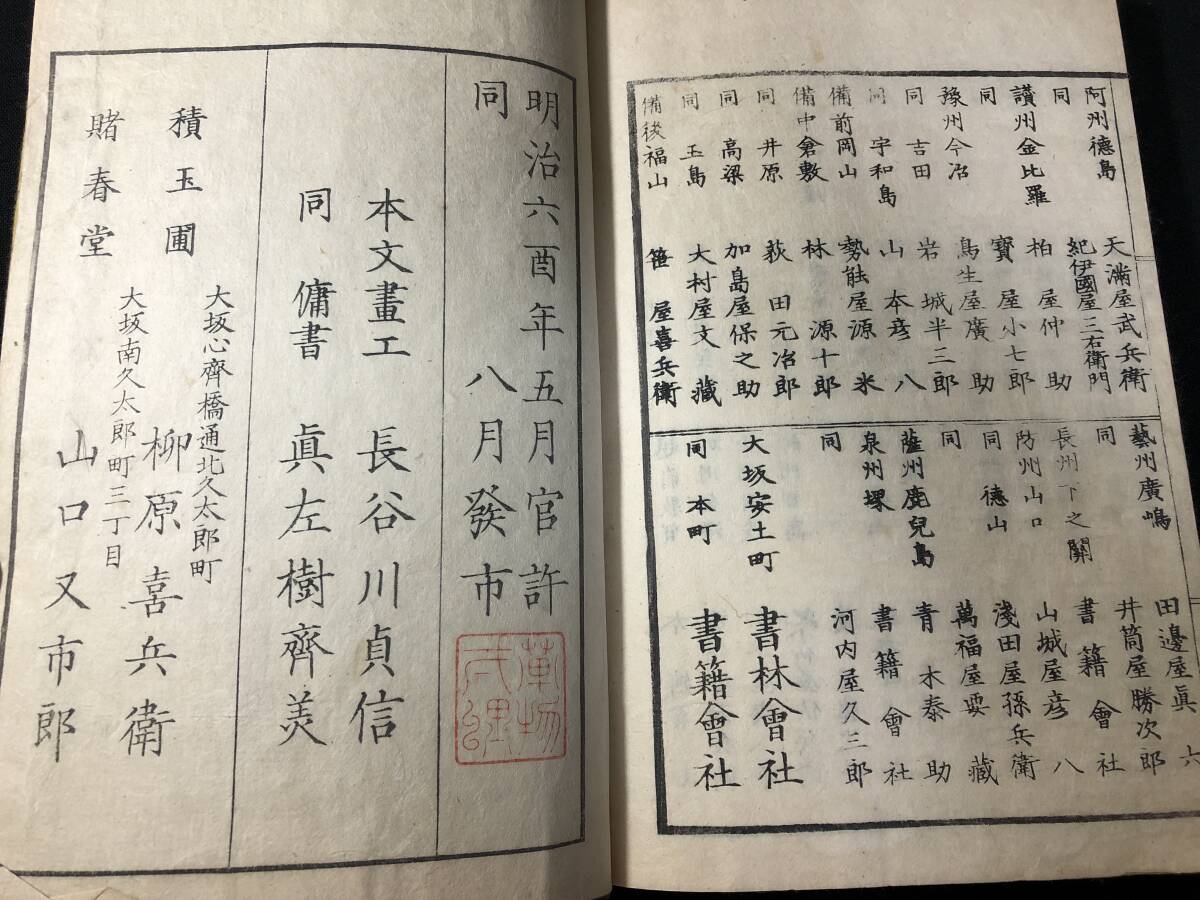 阿州德島 天滿屋武兵衛
同 紀伊國屋三右衛門
讃州金比羅 柏屋仲助
同 寶屋小七郎
豫州今治 鳥生屋廣助
同 吉田 岩城半三郎
同 宇和島 山本彦八
備前岡山 勢能屋源米
備中倉敷 林源十郎
同 井原 荻田元治郎
同 高梁 加島屋保之助
同 玉島 大村屋文藏
備後福山 笹屋喜兵衛
藝州廣嶋 田邊屋眞六
同 井筒屋勝次郎
長州下之關 書籍會社
防州山口 山城屋彦八
同 德山 淺田屋孫兵衛
同 萬福屋要藏
薩州鹿兒島 青木泰助
泉州堺 書籍會社
同 河内屋久三郎
大坂安土町 書林會社
同 本町 書籍會社
明治六酉年五月官許
同 八月發市
本文畫工 長谷川貞信
同 傭書 眞左樹齊美
大坂心齊橋通北久太郎町
積玉圃 柳原喜兵衛
大坂南久太郎町三丁目
賭春堂 山口又市郎